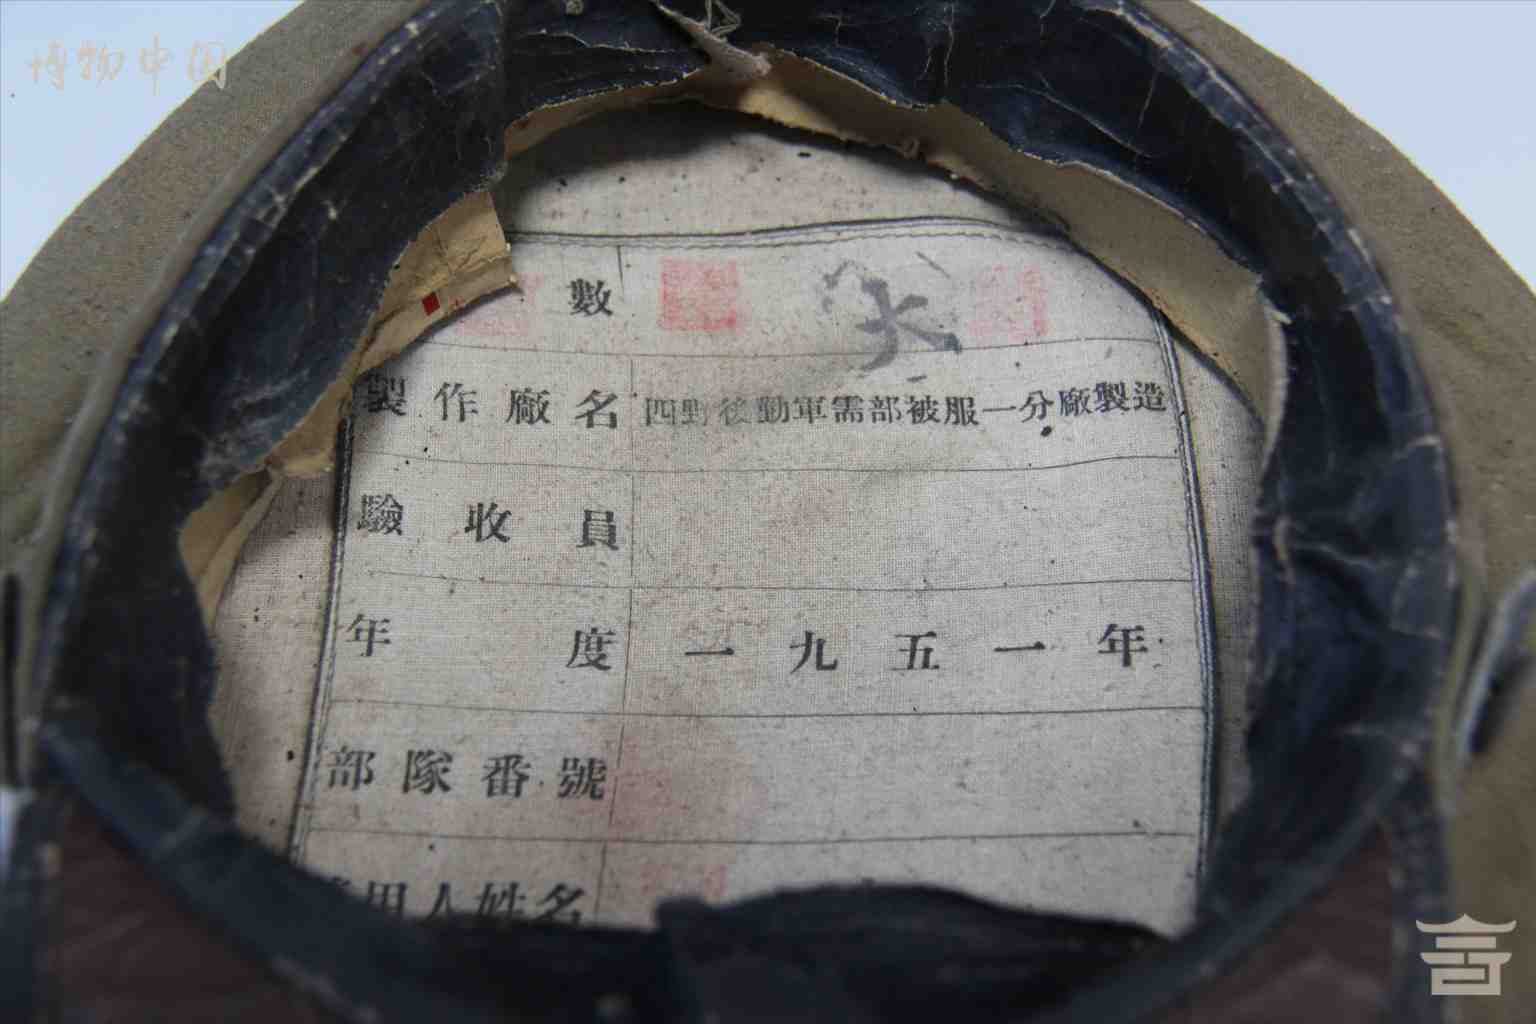 博物中国
數 大
製作廠名 四野後勤軍需部被服一分廠製造
驗收員
年度 一九五一年
部隊番號
用人姓名